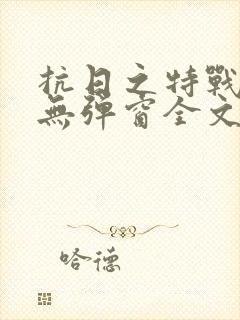 抗日之特戰
無彈窗全文
哈德